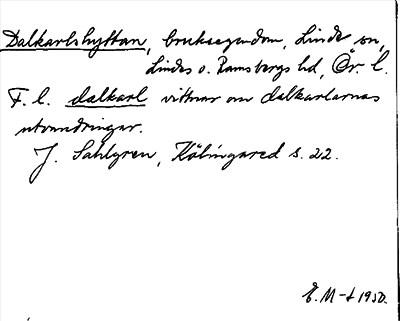 Dalkarlshyttan, bruksegendom, Linde sn,
Lindes o. Ramsbergs hd, Ör. l.
F. l. dalkarl vittnar om dalkarlarnas
utvandringar.
J. Sahlgren, Kölingared s. 22.
E. M-t 1950.